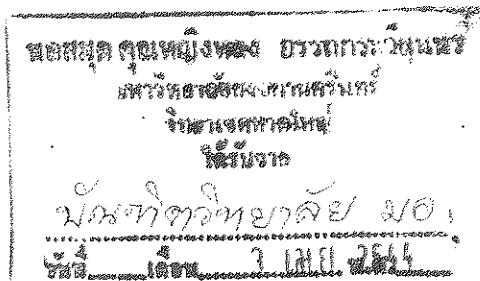 หอสมุด คุณหญิงหลง อรรถกระวีสุนทร
มหาวิทยาลัยสงขลานครินทร์
วิทยาเขตหาดใหญ่
ได้รับจาก
บัณฑิตวิทยาลัย มอ.
วันที่ เดือน 3 เมย พ.ศ.